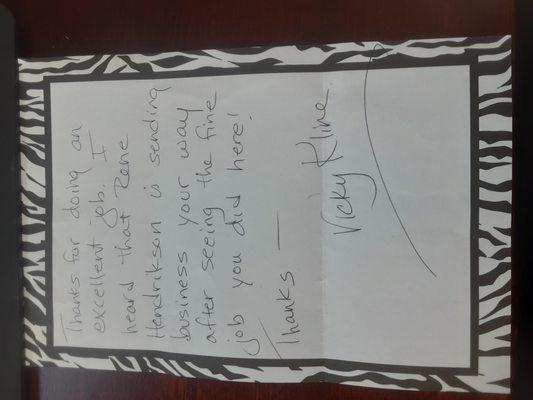 Thanks for doing an
excellent job. I
heard that Rene
Hendrikson is sending
business your way
after seeing the fine
job you did here!
Thanks —
Vicky Kline